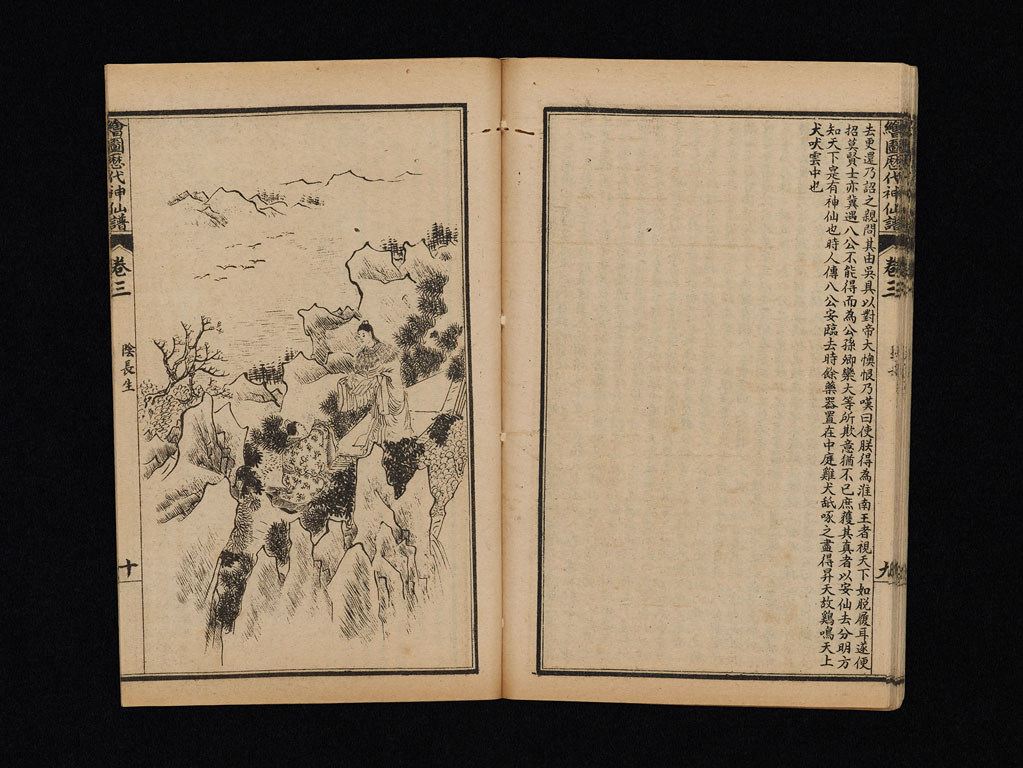 繪圖歷代神仙譜
卷三
九
去更還乃詔之親問其由吳具以對帝大懊恨乃嘆曰使朕得為淮南王者視天下如脫履耳遂便
招莫賢士亦冀遇八公不能得而為公孫卿欒大等所欺意猶不已庶獲其真者以安仙去分明方
知天下寔有神仙也時人傳八公安臨去時餘藥器置在中庭雞犬舐啄之盡得昇天故鷄鳴天上
犬吠雲中也
繪圖歷代神仙譜
卷三
陰長生
十